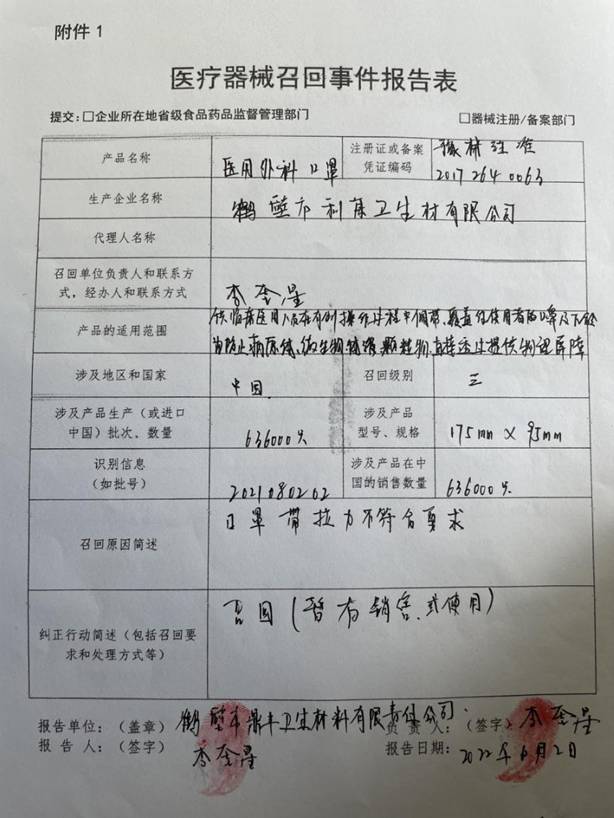 附件 1
医疗器械召回事件报告表
提交：□企业所在地省级食品药品监督管理部门 □器械注册/备案部门
产品名称 医用外科口罩 注册证或备案凭证编码 豫械注准 2017 264 0063
生产企业名称 鹤壁市利康卫生材有限公司
代理人名称
召回单位负责人和联系方式，经办人和联系方式 李奎星
产品的适用范围 供临床医用人员在有创操作过程中佩带，覆盖住使用者的口鼻及下颌
为防止病原体、微生物、颗粒物直接透过提供物理屏障
涉及地区和国家 中国 召回级别 三
涉及产品生产（或进口中国）批次、数量 636000只 涉及产品型号、规格 175mm × 95mm
识别信息（如批号） 2021080202 涉及产品在中国的销售数量 636000只
召回原因简述 口罩带拉力不符合要求
纠正行动简述（包括召回要求和处理方式等） 召回（暂存销售、或使用）
报告单位：（盖章） 鹤壁市鼎丰卫生材料有限责任公司 负责人：（签字） 李奎星
报告人：（签字） 李奎星 报告日期： 2022年6月2日